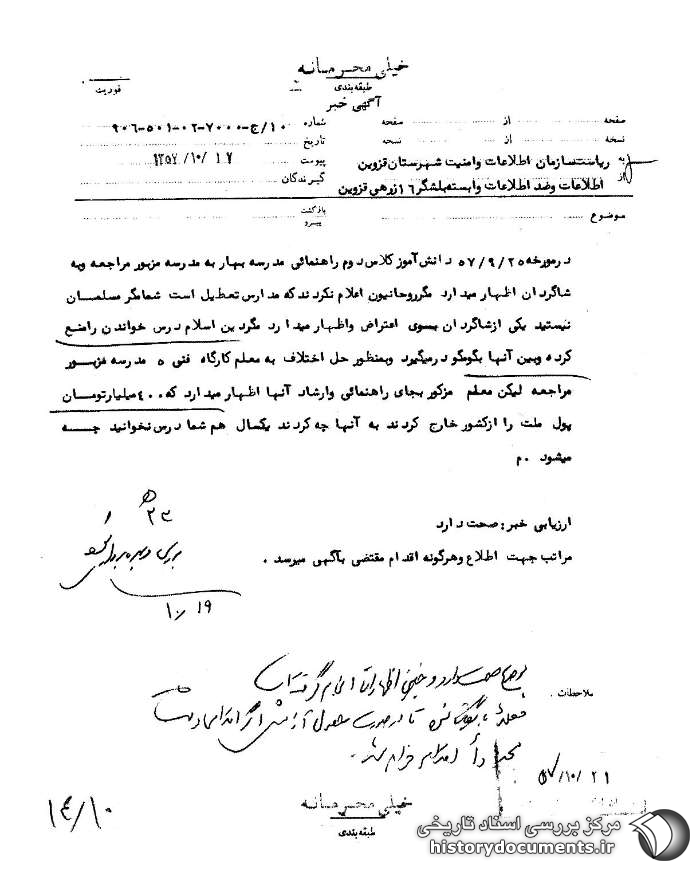 خیلی محرمانه
طبقه‌بندی
فوریت
آگهی خبر
صفحه از صفحه شماره ۱۰/ج-۷۰۰۰-۰۲-۵۰۱-۹۰۶
نسخه از نسخه تاریخ
به ریاست سازمان اطلاعات وامنیت شهرستان قزوین پیوست ۱۳۵۷/۱۰/۱۷
از اطلاعات وضد اطلاعات وابسته بلشگر ۱۶ زرهی قزوین گیرندگان
موضوع بازگشت
پیرو
درمورخه ۵۷/۹/۲۵ دانش‌آموز کلاس دوم راهنمائی مدرسه بهار به مدرسه مزبور مراجعه وبه
شاگردان اظهار میدارد مگرروحانیون اعلام نکردند که مدارس تعطیل است شمامگر مسلمان
نیستید یکی ازشاگردان بسوی اعتراض واظهار میدارد مگردین اسلام درس خواندن رامنع
کرده وبین آنها بگومگو درمیگیرد وبمنظور حل اختلاف به معلم کارگاه فنی ه مدرسه مزبور
مراجعه لیکن معلم مزکور بجای راهنمائی وارشاد آنها اظهار میدارد که ۴۰۰ میلیارتومان
پول ملت را ازکشور خارج کردند به آنها چه کردند یکسال هم شما درس نخوانید چه
میشود .م
ارزیابی خبر: صحت دارد
مراتب جهت اطلاع وهرگونه اقدام مقتضی بآگهی میرسد .
۲۳
۱۰/۱۹
ملاحظات .
۵۷/۱۰/۲۱
خیلی محرمانه
طبقه‌بندی
۱۴/۱۰
مرکز بررسی اسناد تاریخی
historydocuments.ir